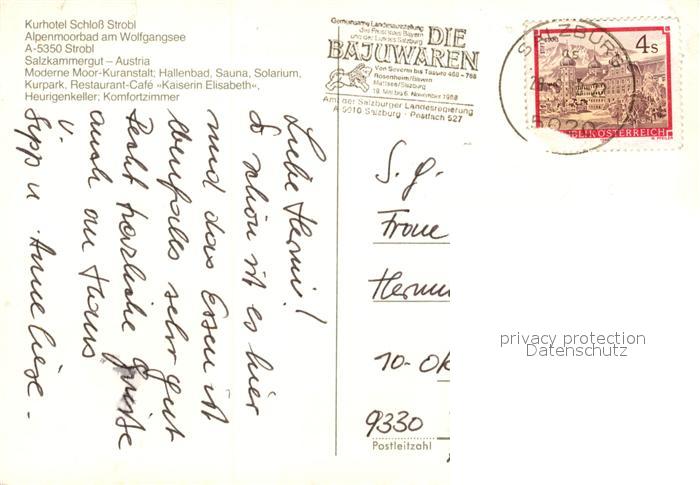 Kurhotel Schloß Strobl
Alpenmoorbad am Wolfgangsee
A-5350 Strobl
Salzkammergut – Austria
Moderne Moor-Kuranstalt; Hallenbad, Sauna, Solarium,
Kurpark, Restaurant-Café »Kaiserin Elisabeth«,
Heurigenkeller; Komfortzimmer
Gemeinsame Landesausstellung
des Freistaates Bayern
und des Landes Salzburg
DIE
BAJUWAREN
Von Severin bis Tassilo 488 - 788
Rosenheim/Bayern
Mattsee/Salzburg
19. Mai bis 6. November 1988
Amt der Salzburger Landesregierung
A-5010 Salzburg · Postfach 527
SALZBURG
5020
4 S
REPUBLIK ÖSTERREICH
Liebe Hermi!
So schön ist es hier
und das Essen ist
ebenfalls sehr gut
Recht herzliche Grüsse
auch an Hans
v.
Sepp u. Anneliese.
S. g.
Frau
Herm
10-Ok
9330
Postleitzahl
privacy protection
Datenschutz